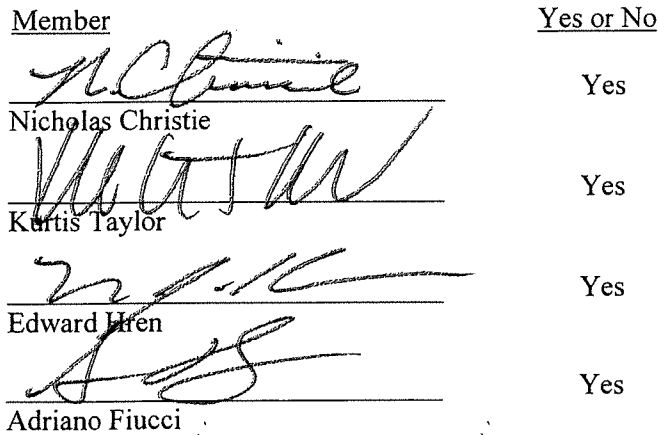 Member Yes or No
Yes
Nicholas Christie
Yes
Kurtis Taylor
Yes
Edward Hren
Yes
Adriano Fiucci